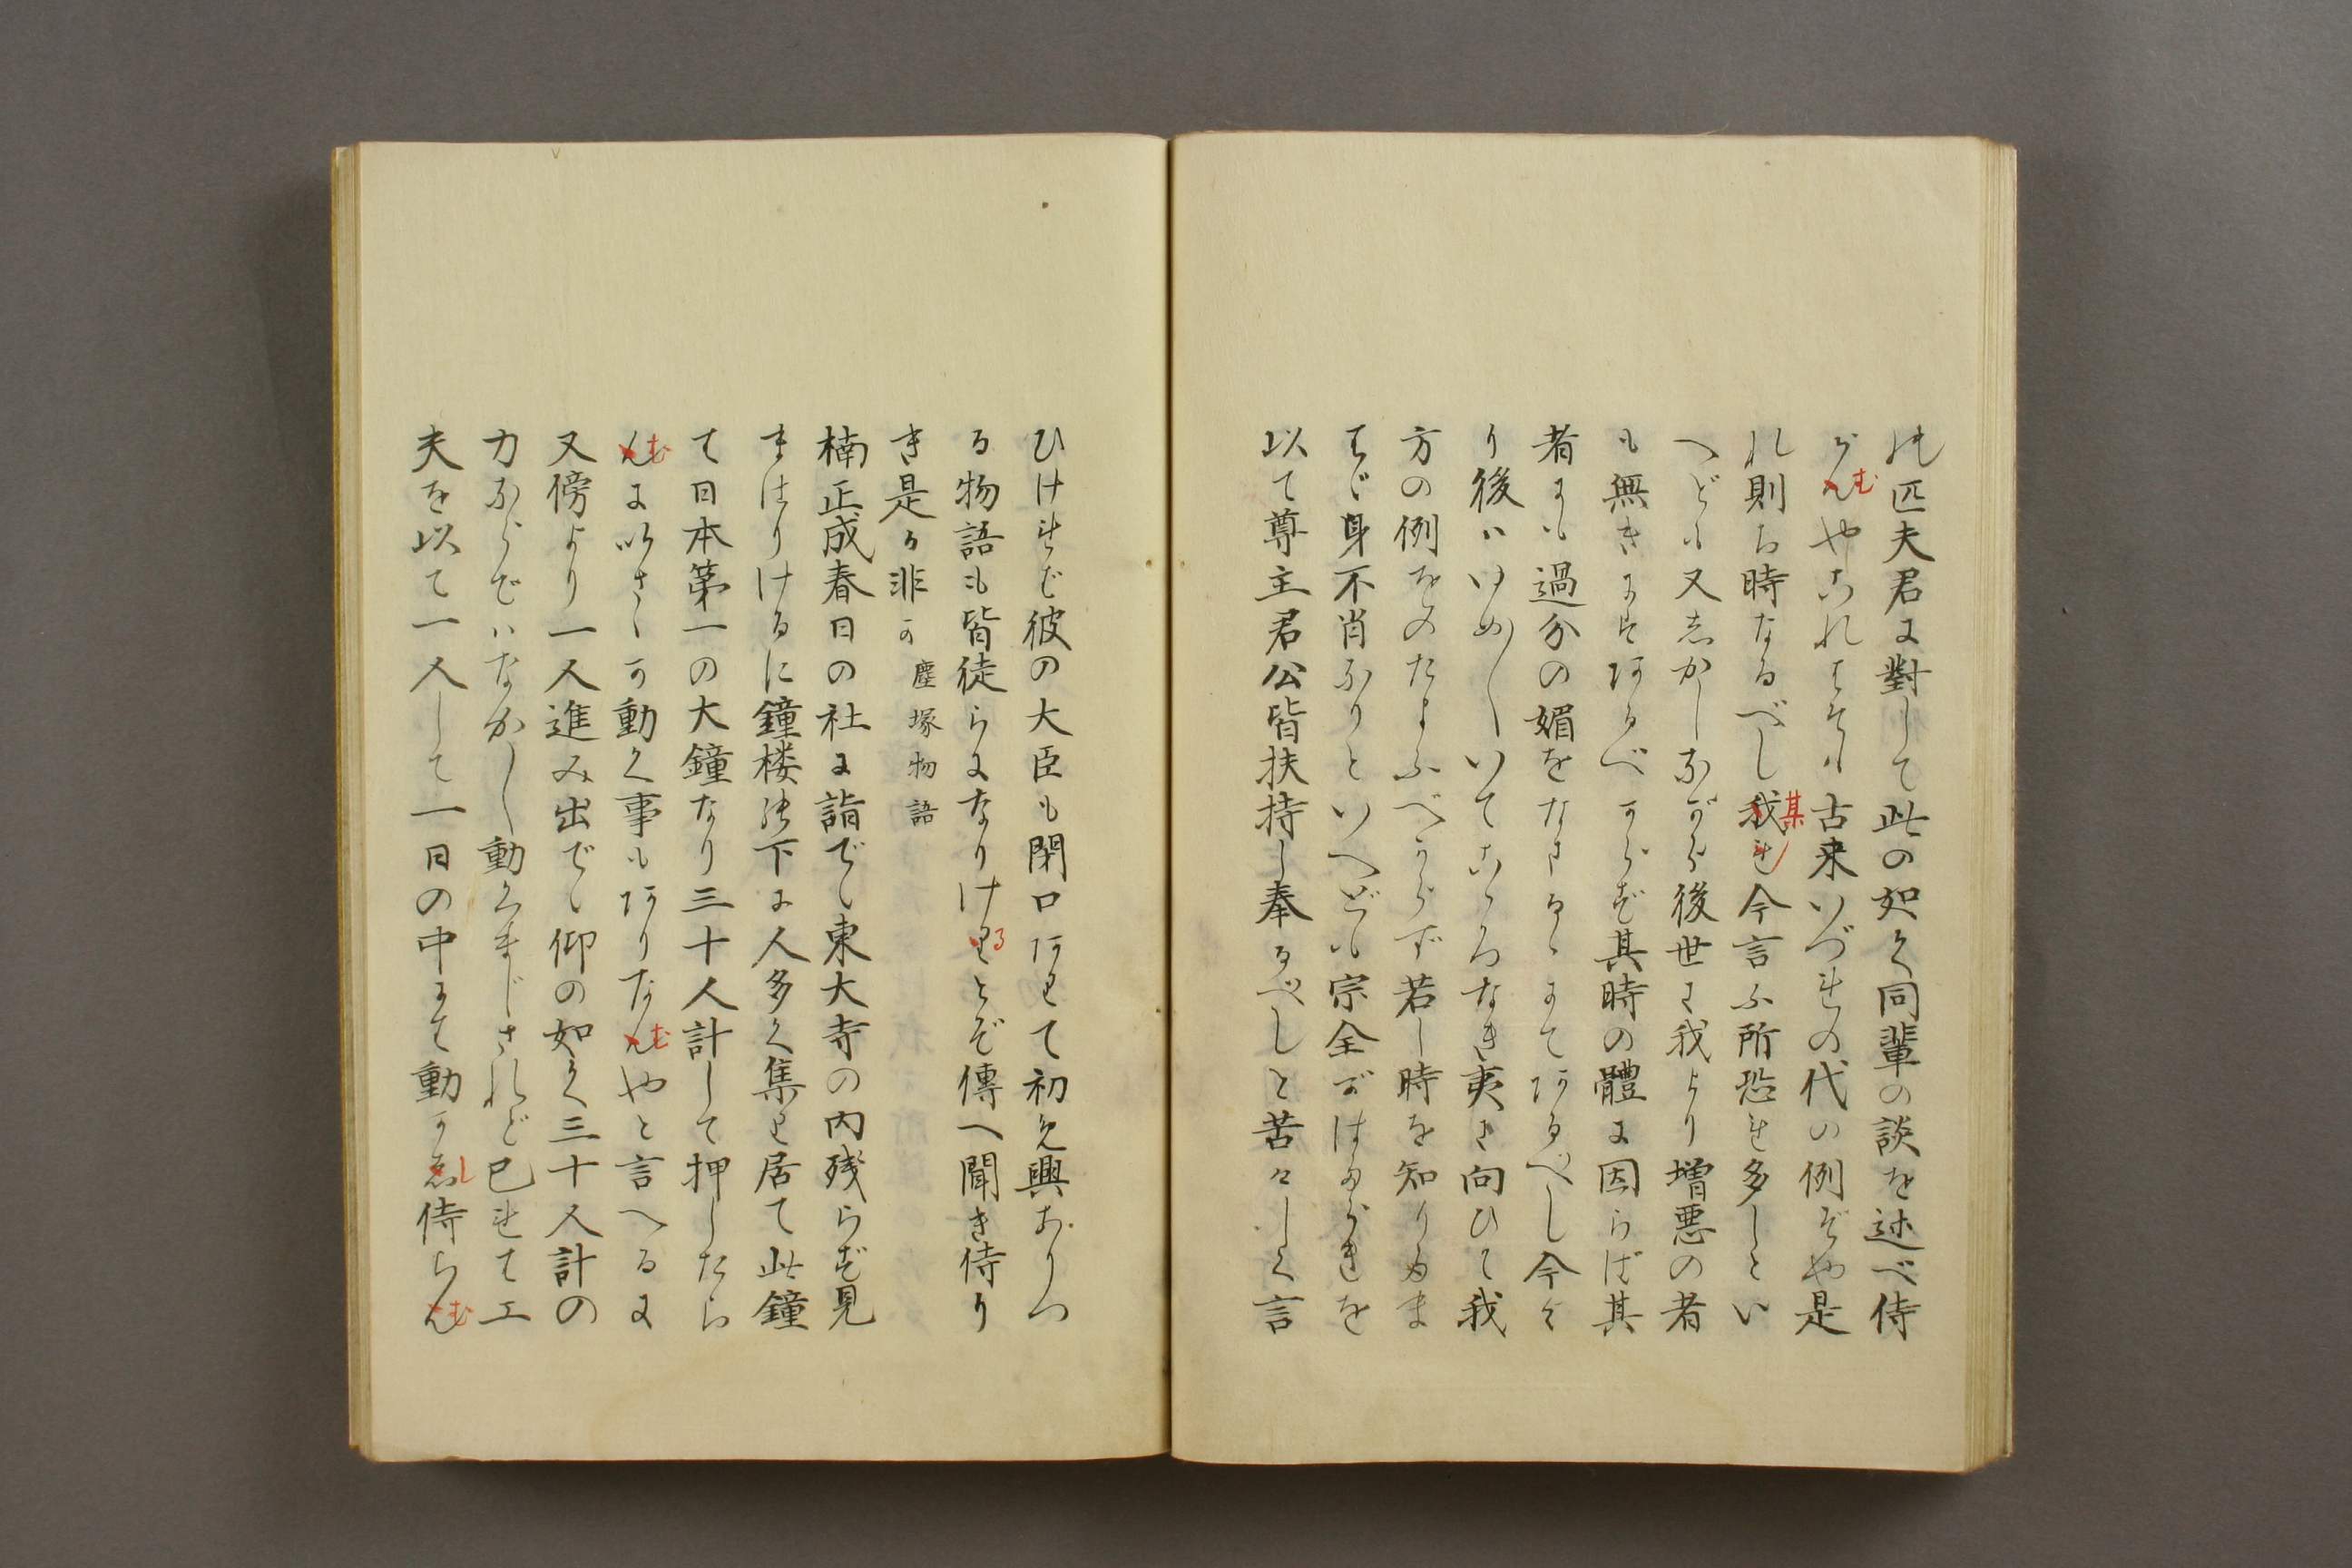 の匹夫君に對して此の如く同輩の談を述べ侍
らんむやあれはそも古来いづれの代の例ぞや是
れ則ち時なるべし我某れ今言ふ所恐れ多しとい
へども又しかしながら後世に我より増悪の者
も無きにはあるべからず其時の體に因らば其
者にも過分の媚をなさるゝにてあるべし今よ
り後はゆめ〳〵いてこゝろなき夷に向ひて我
方の例をのたまふべからず若し時を知り給ま
はゞ身不肖なりといへども宗全がはたらきを
以て尊主君公皆扶持し奉るべしと苦々しく言
ひければ彼の大臣も閉口ありて初め興ありつ
る物語も皆徒らになりけりるとぞ傳へ聞き侍り
き是か非か 塵塚物語
楠正成春日の社に詣で〻東大寺の内残らず見
まはりけるに鐘楼の下に人多く集り居て此鐘
て日本第一の大鐘なり三十人計して押したら
んむにいさゝか動く事もありなんむやと言へるに
又傍より一人進み出で〻仰の如く三十人計の
力ならではなか〳〵動くまじされど己れて工
夫を以て一人して一日の中にて動かし侍らんむ